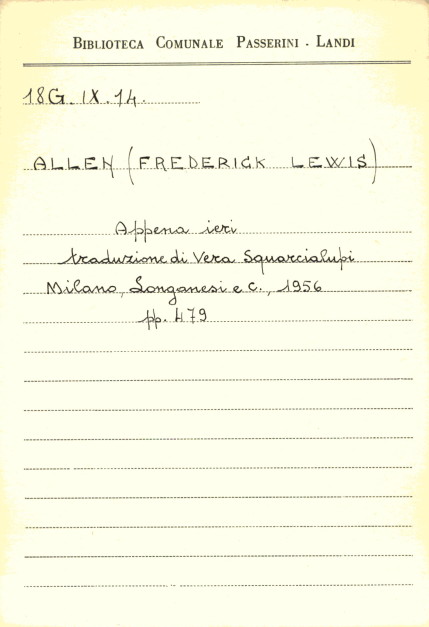 BIBLIOTECA COMUNALE PASSERINI - LANDI
18G. IX. 14.
ALLEN (FREDERICK LEWIS)
Appena ieri
traduzione di Vera Squarcialupi
Milano, Longanesi e C., 1956
pp. 479